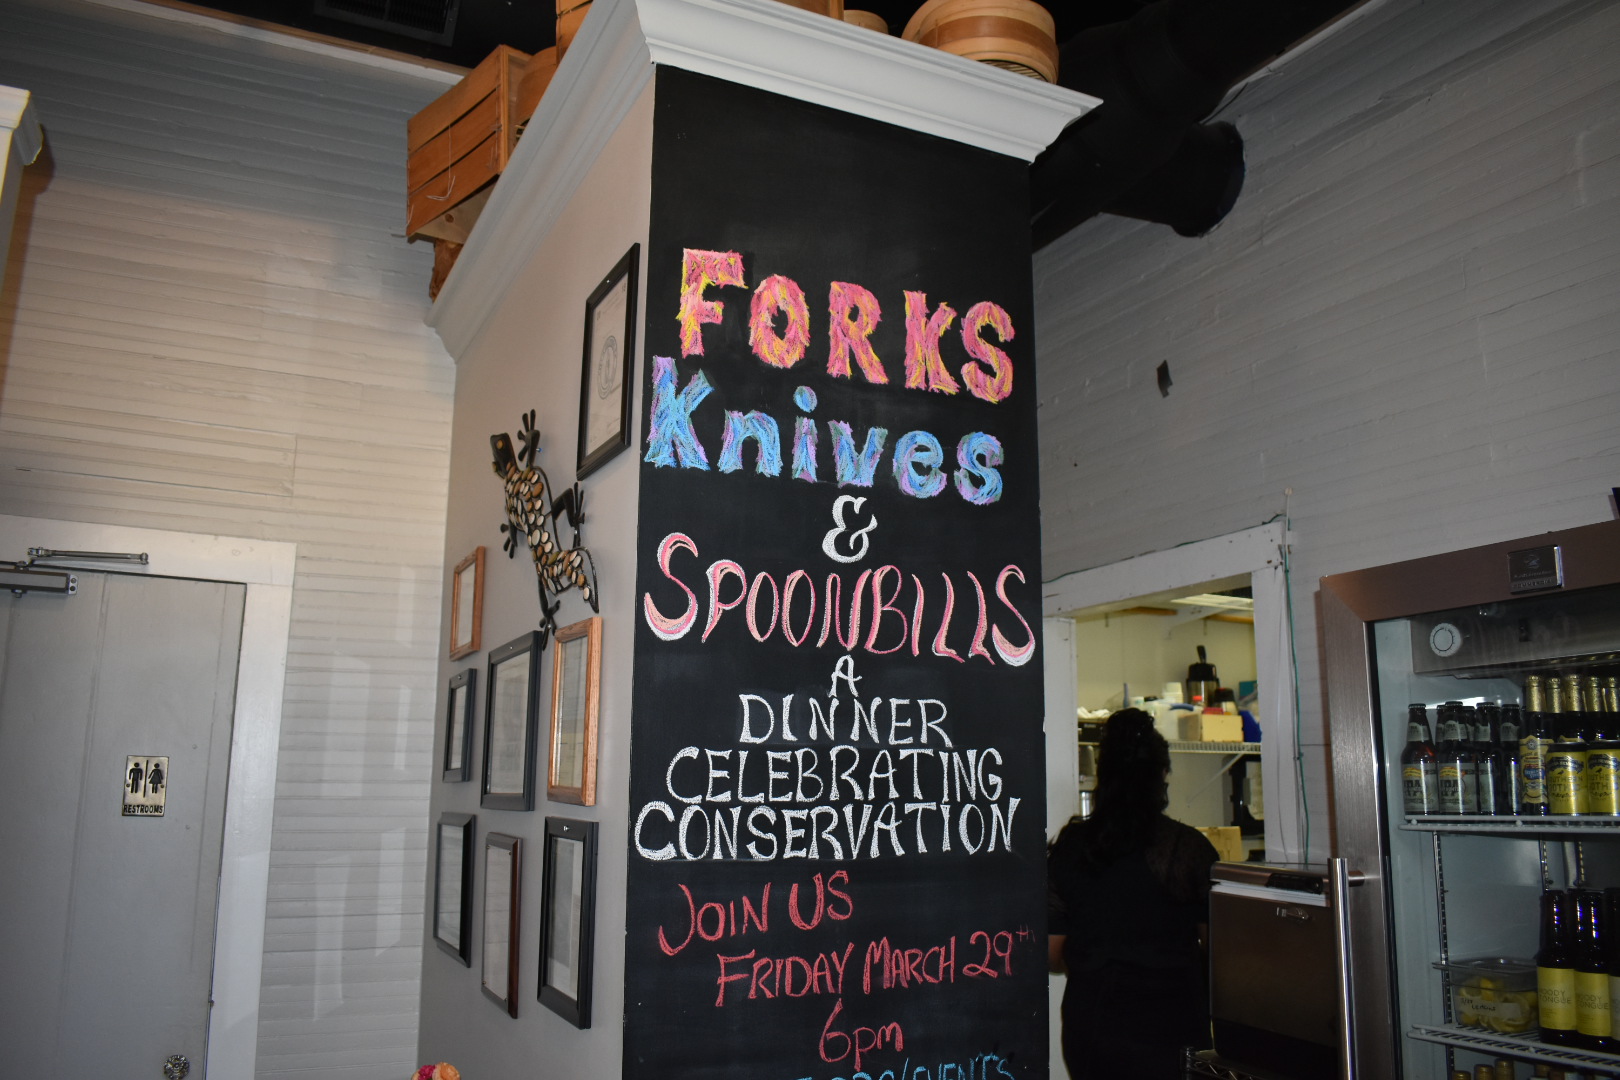 FORKS
Knives
&
SPOONBILLS
A
DINNER
CELEBRATING
CONSERVATION
JOIN US
FRIDAY MARCH 29th
6pm
/EVENTS
RESTROOMS